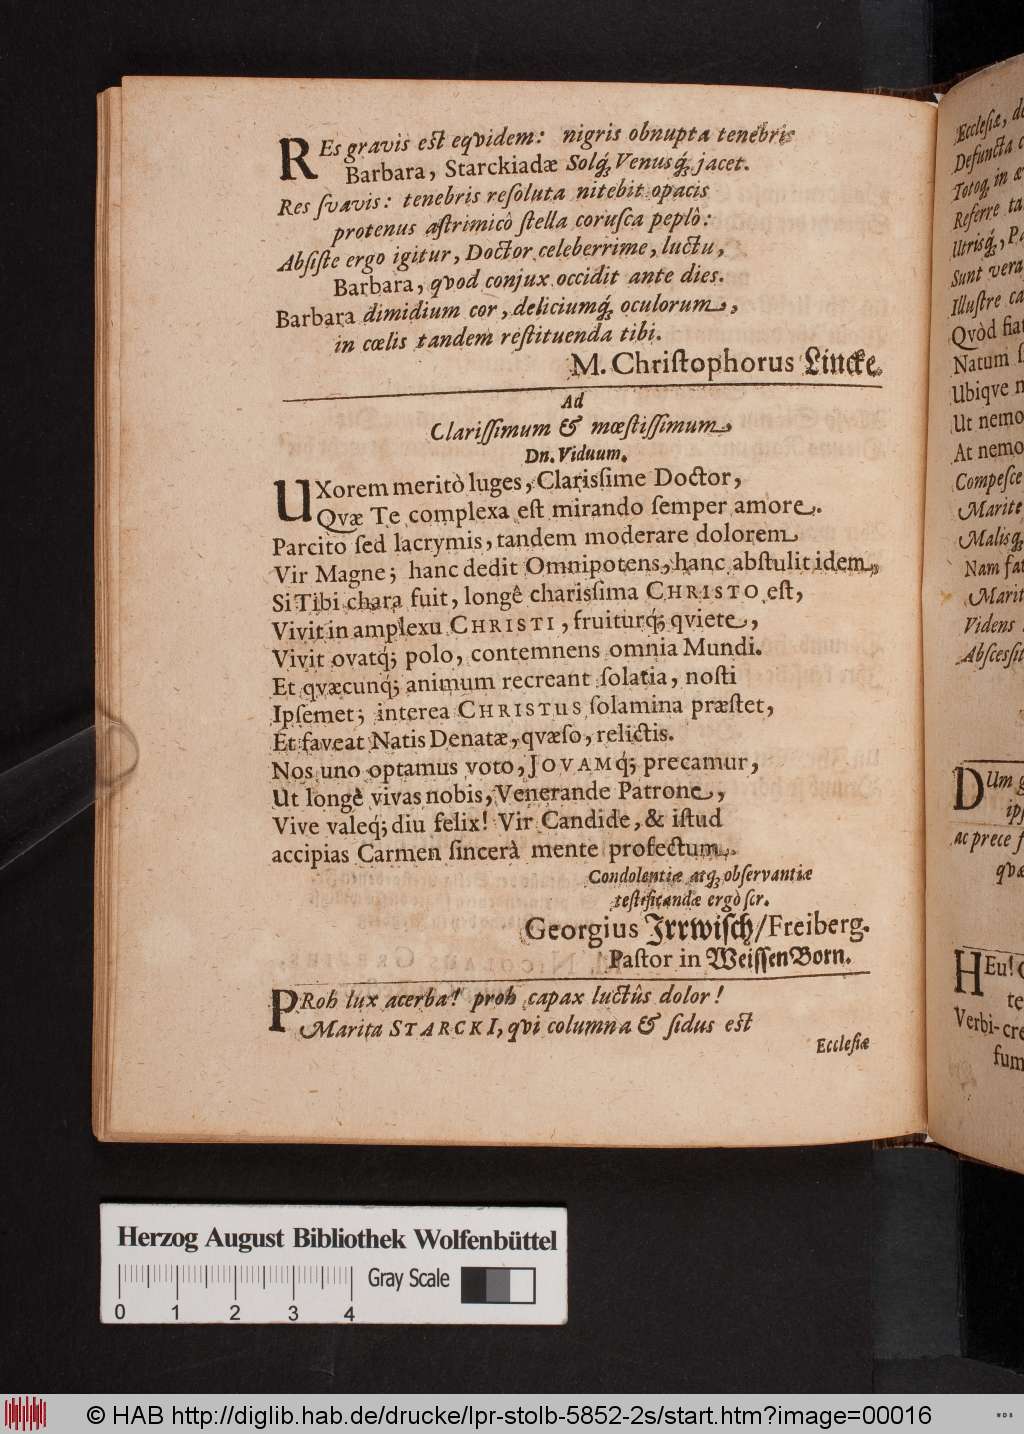 REs gravis est eqvidem: nigris obnupta tenebris
Barbara, Starckiadæ Solq́; Venusq́; jacet.
Res ſvavis: tenebris reſoluta nitebit opacis
protenus aſtrimicò ſtella coruſca peplò:
Abſiſte ergo igitur, Doctor celeberrime, luctu,
Barbara, qvod conjux occidit ante dies.
Barbara dimidium cor, deliciumq́; oculorum,
in cœlis tandem reſtituenda tibi.
M. Chriſtophorus Lincke.
Ad
Clariſſimum & mœſtiſſimum
Dn. Viduum.
UXorem meritò luges, Clarisſime Doctor,
Qvæ Te complexa eſt mirando ſemper amore.
Parcito ſed lacrymis, tandem moderare dolorem
Vir Magne; hanc dedit Omnipotens, hanc abſtulit idem,
Si Tibi chara fuit, longê charisſima CHRISTO eſt,
Vivit in amplexu CHRISTI, fruiturq́; qviete,
Vivit ovatq́; polo, contemnens omnia Mundi.
Et qvæcunq́; animum recreant ſolatia, noſti
Ipſemet; interea CHRISTUS ſolamina præſtet,
Et faveat Natis Denatæ, qvæſo, relictis.
Nos uno optamus voto, JOVAMq́; precamur,
Ut longè vivas nobis, Venerande Patrone,
Vive valeq́; diu felix! Vir Candide, & iſtud
accipias Carmen ſincerà mente profectum.
Condolentiæ atq́; obſervantiæ
teſtificandæ ergò ſcr.
Georgius Irrwiſch/Freiberg.
Paſtor in Weiſſen Born.
PRoh lux acerba! proh capax luctûs dolor!
Marita STARCKI, qvi columna & ſidus eſt
Eccleſiæ
Eccleſiæ, 
Defuncta
Totoq́; in
Referre
Utrisq́;,
Sunt vera
Illuſtre
Qvòd fiat
Natum
Ubiqve
Ut nemo
At nemo
Compeſce
Marite
Malisq́;
Nam
Videns
DUm
ac prece
HEu!
Herzog August Bibliothek Wolfenbüttel
0 1 2 3 4 Gray Scale
© HAB http://diglib.hab.de/drucke/lpr-stolb-5852-2s/start.htm?image=00016